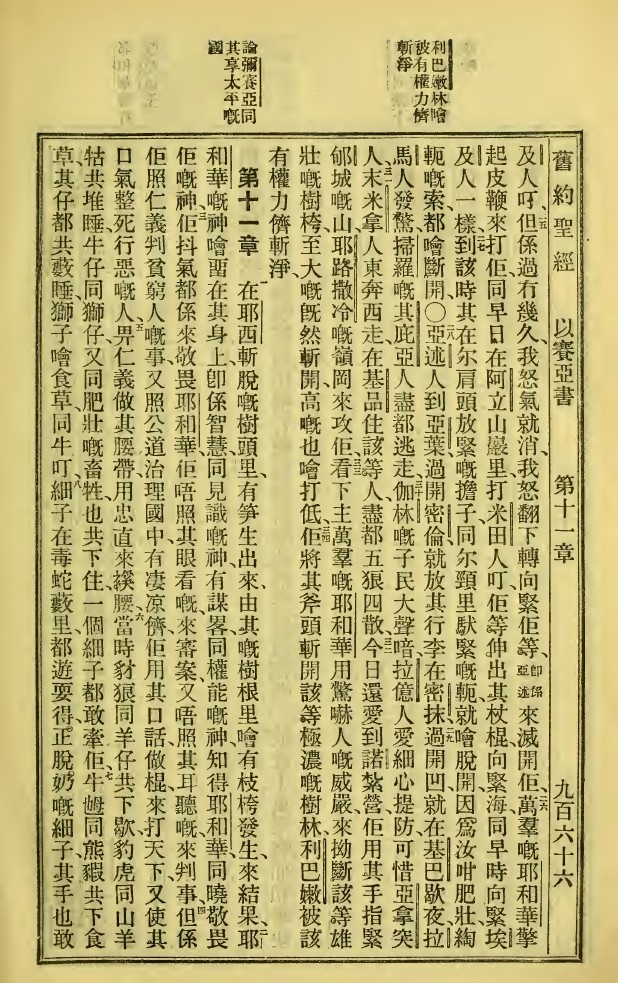 利巴嫩林噲
被有權力儕
斬淨
論彌賽亞同
其享太平嘅
國
舊約聖經 以賽亞書 第十一章 九百六十六
及人叮、但係過冇幾久、我怒氣就消、我怒翻下轉向緊佢等、卽係亞述來滅開佢、萬羣嘅耶和華擎
起皮鞭來打佢、同早日在阿立山巖里打米田人叮、佢等伸出其杖棍向緊海、同早時向緊埃
及人一樣、到該時其在尔肩頭放緊嘅擔子、同尔頸里䭾緊嘅軛就噲脫開、因爲汝咁肥壯、綯
軛嘅索都噲斷開〇亞述人到亞葉、過開密倫、就放其行李在密抹、過開凹就在基巴歇夜、拉
馬人發驚、掃羅嘅其庇亞人盡都逃走、伽林嘅子民大聲喑、拉億人愛細心提防、可惜亞拿突
人、末米拿人東奔西走、在基品住該等人、盡都五狼四散、今日還愛到諾紮營、佢用其手指緊
郇城嘅山、耶路撒冷嘅嶺岡來攻佢、看下主萬羣嘅耶和華、用驚嚇人嘅威嚴、來拗斷該等雄
壯嘅樹桍、至大嘅旣然斬開、高嘅也噲打低、佢將其斧頭斬開該等極濃嘅樹林、利巴嫩被該
有權力儕斬淨、
第十一章 在耶西斬脫嘅樹頭里、有笋生出來、由其嘅樹根里噲有枝桍發生來結果、耶
和華嘅神噲䍃在其身上、卽係智慧同見識嘅神、有謀畧同權能嘅神、知得耶和華同曉敬畏
佢嘅神、佢抖氣都係來敬畏耶和華、佢唔照其眼看嘅、來審案、又唔照其耳聽嘅來判事、但係
佢照仁義判貧窮人嘅事、又照公道治理國中有凄凉儕、佢用其口話做棍來打天下、又使其
口氣整死行惡嘅人、畀仁義做其腰帶、用忠直來緩腰、當時豺狼同羊仔共下歇、豹虎同山羊
牯共堆睡、牛仔同獅仔、又同肥壯嘅畜牲也共下住、一個細子都敢牽佢、牛𡜵同熊豭共下食
草、其仔都共藪睡、獅子噲食草同牛叮、細子在毒蛇藪里、都遊耍得、正脫奶嘅細子、其手也敢